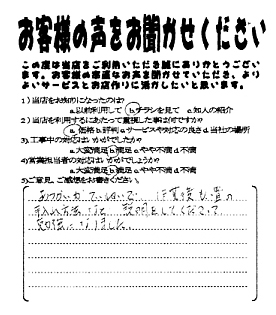 お客様の声をお聞かせください
この度は当店をご利用いただき誠にありがとうござい
ます。お客様の率直なお声を聞かせていただき、より
よいサービスとお店作りに活かしたいと思います。
1)当店をお知りになったのは?
a.以前利用して b.チラシを見て c.知人の紹介
2)当店を利用するにあたって重視した事は何ですか?
a.価格 b.評判 c.サービスや対応の良さ d.当社の場所
3)工事中の対応はいかがでしたか?
a.大変満足 b.満足 c.やや不満 d.不満
4)営業担当者の対応はいかがでしょうか?
a.大変満足 b.満足 c.やや不満 d.不満
5)ご意見、ご感想をお書きください。
ていねいで
手入れ方法など 説明をしてくださって
勉強になりました。